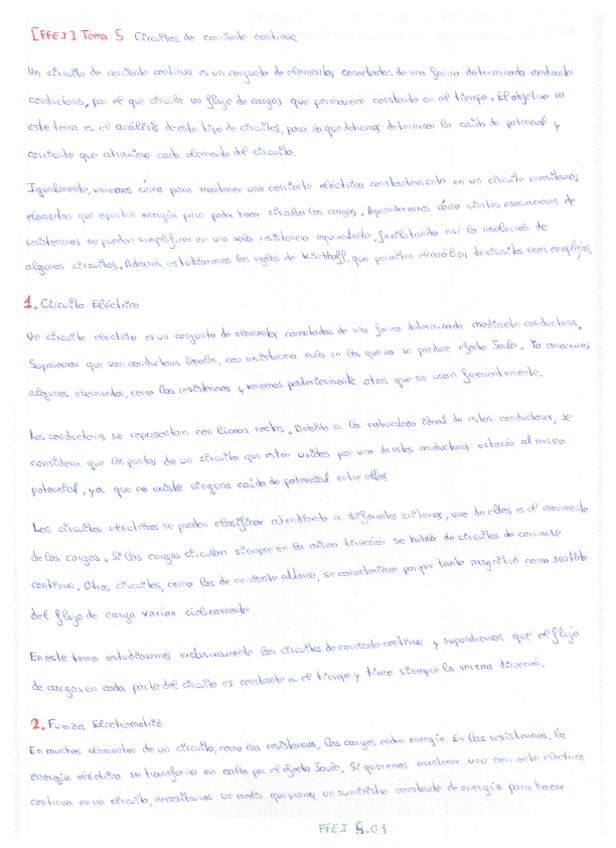 [FFEI] Tema 5 Circuitos de corriente continua
Un circuito de corriente continua es un conjunto de elementos conectados de una forma determinada mediante
conductores, por el que circula un flujo de cargas que permanece constante en el tiempo. El objetivo en
este tema es el análisis de este tipo de circuitos, para lo que debemos determinar la caída de potencial y
corriente que atraviesa cada elemento del circuito.
Igualmente, veremos cómo para mantener una corriente eléctrica constantemente en un circuito necesitamos
elementos que aporten energía para poder hacer circular las cargas. Aprenderemos cómo ciertas asociaciones de
resistencias se pueden simplificar en una sola resistencia equivalente, facilitando así la resolución de
algunos circuitos. Además, estudiaremos las reglas de Kirchhoff, que permiten el análisis de circuitos más complejos.
1. Circuito Eléctrico
Un circuito eléctrico es un conjunto de elementos conectados de una forma determinada mediante conductores.
Suponemos que son conductores ideales, con resistencia nula en los que no se produce efecto Joule. Ya conocemos
algunos elementos, como las resistencias y veremos posteriormente otros que se usan frecuentemente.
Los conductores se representan con líneas rectas. Debido a la naturaleza ideal de estos conductores, se
considera que los puntos de un circuito que estén unidos por uno de estos conductores estarán al mismo
potencial, ya que no existe ninguna caída de potencial entre ellos
Los circuitos eléctricos se pueden clasificar atendiendo a diferentes criterios, uno de ellos es el movimiento
de las cargas. Si las cargas circulan siempre en la misma dirección se habla de circuitos de corriente
continua. Otros circuitos, como los de corriente alterna, se caracterizan porque tanto magnitud como sentido
del flujo de carga varían cíclicamente
En este tema estudiaremos exclusivamente los circuitos de corriente continua y supondremos que el flujo
de cargas en cada parte del circuito es constante en el tiempo y tiene siempre la misma dirección.
2. Fuerza Electromotriz
En muchos elementos de un circuito, como las resistencias, las cargas ceden energía. En las resistencias, la
energía eléctrica se transforma en calor por el efecto Joule. Si queremos mantener una corriente eléctrica
continua en un circuito, necesitamos un medio que provea un suministro constante de energía para hacer
FFEI 5.01